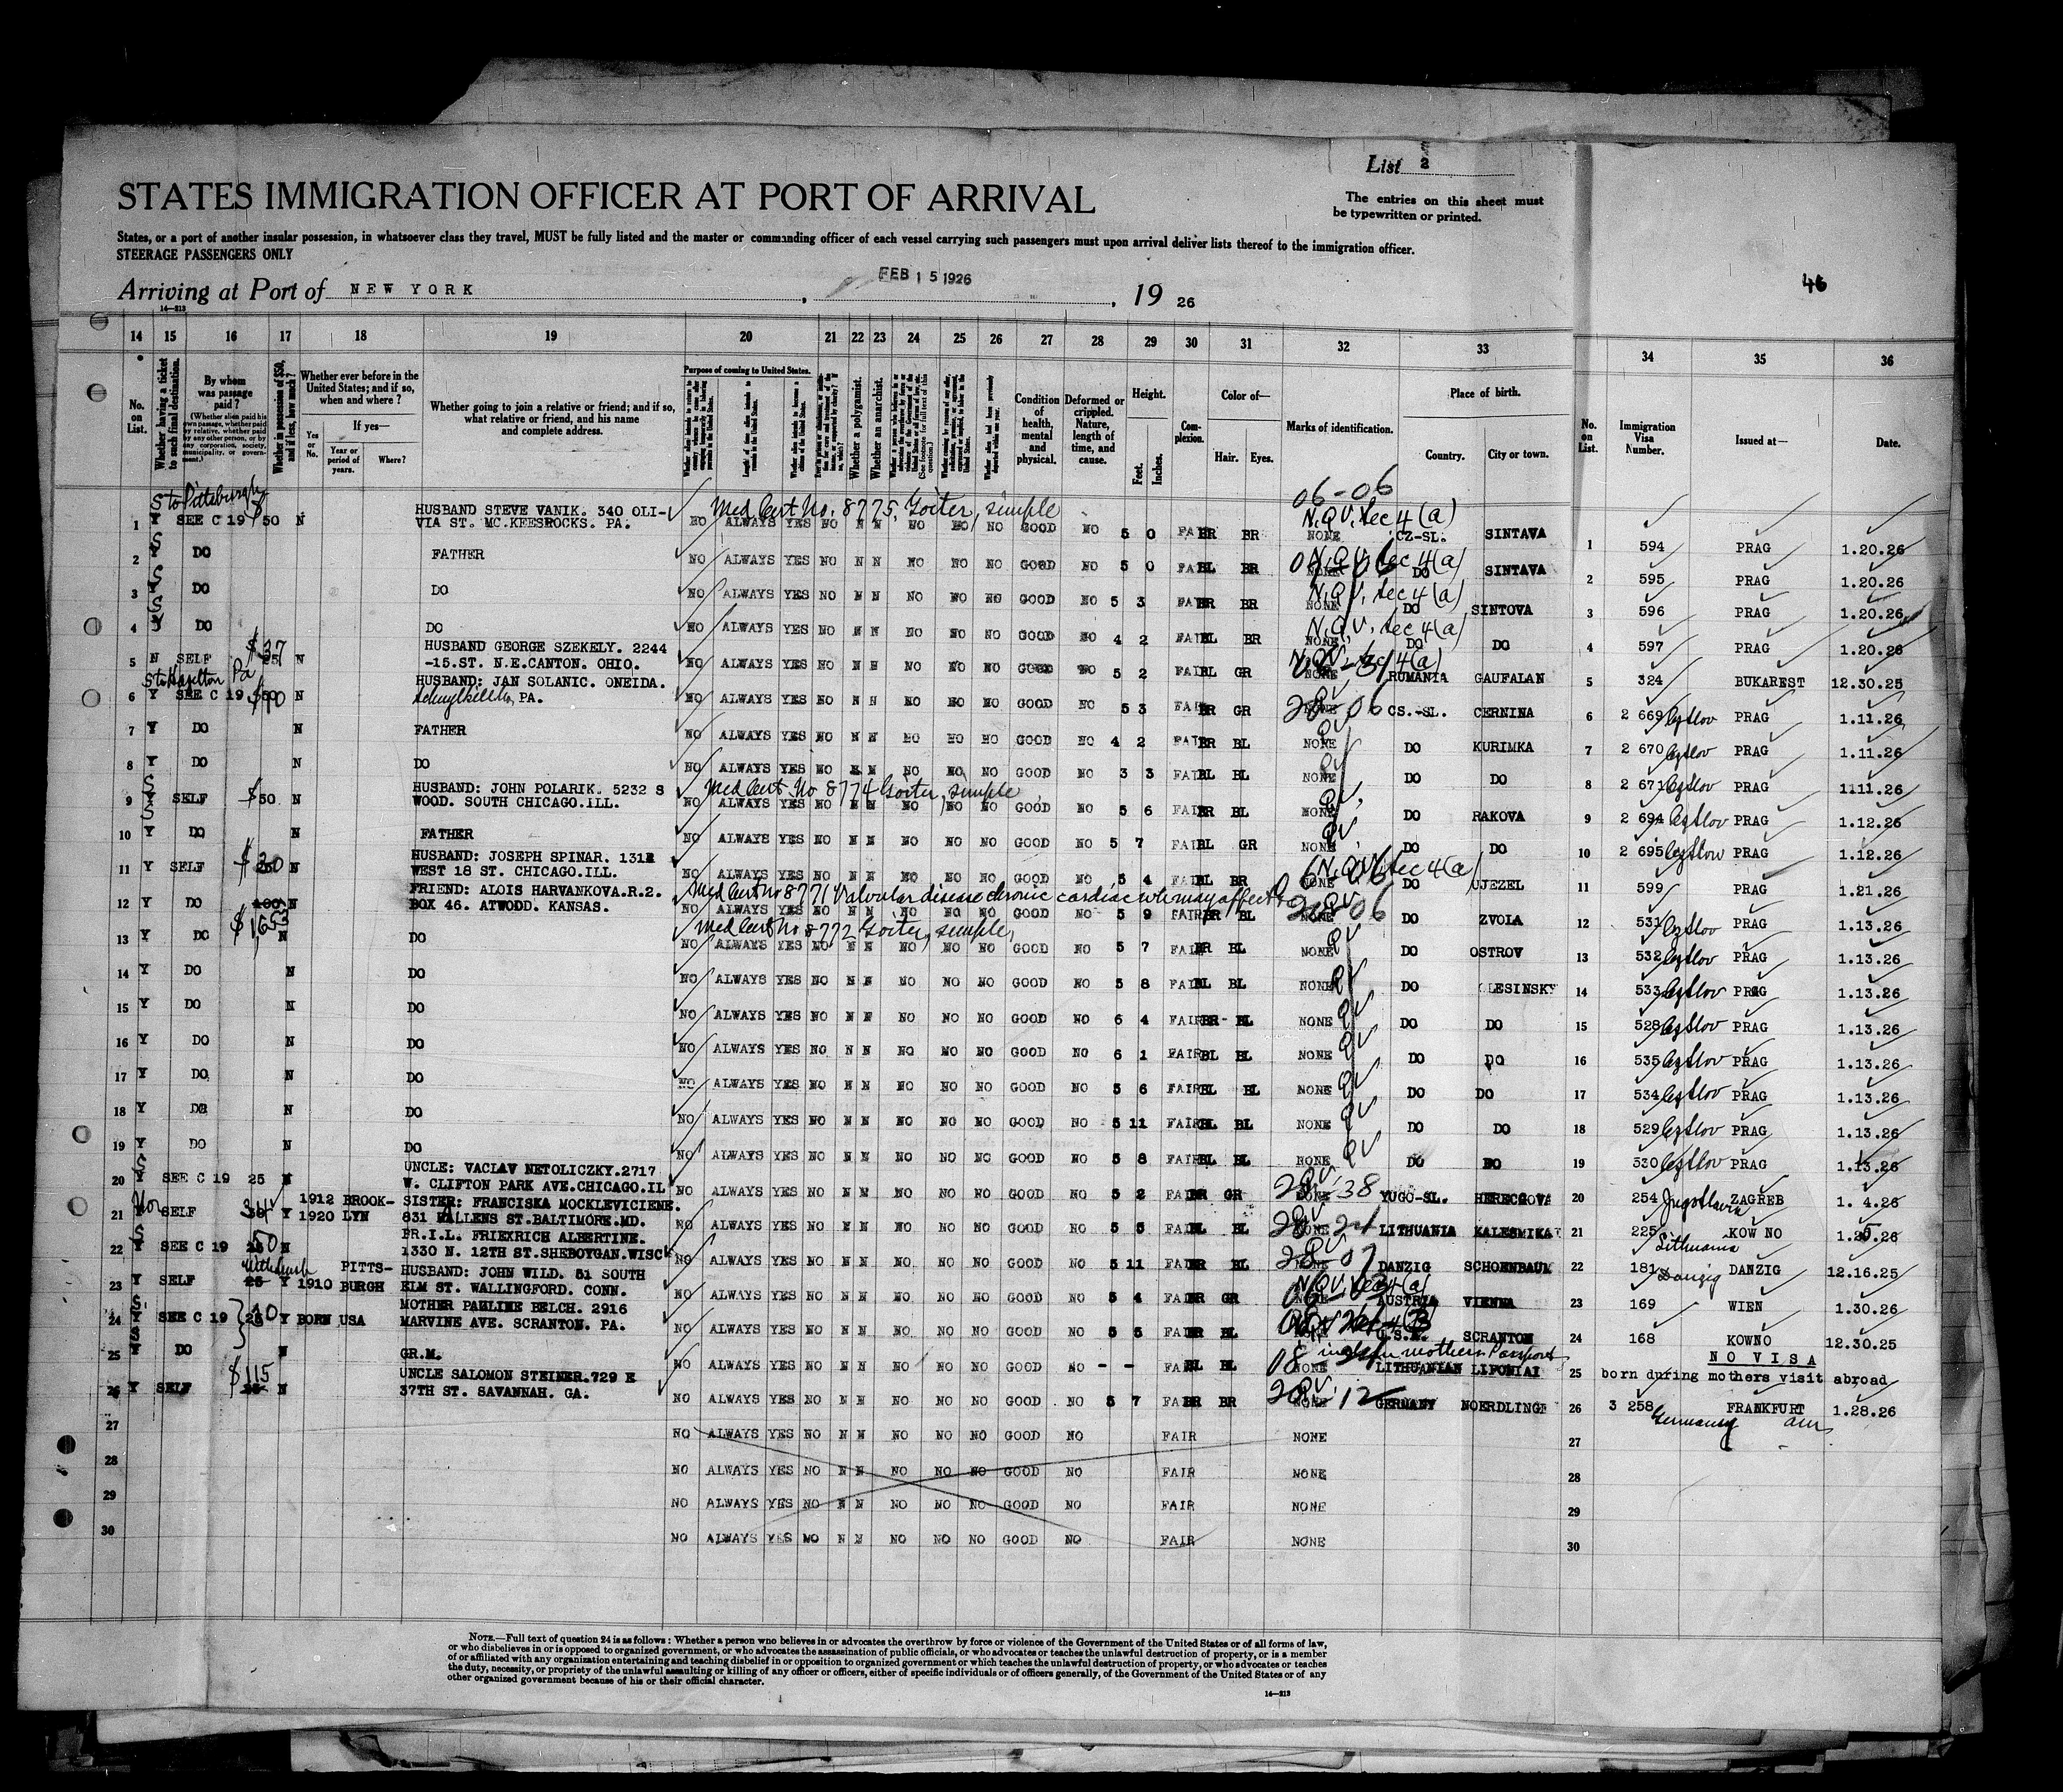 List 2
STATES IMMIGRATION OFFICER AT PORT OF ARRIVAL
The entries on this sheet must
be typewritten or printed.
States, or a port of another insular possession, in whatsoever class they travel, MUST be fully listed and the master or commanding officer of each vessel carrying such passengers must upon arrival deliver lists thereof to the immigration officer.
STEERAGE PASSENGERS ONLY
FEB 15 1926
46
Arriving at Port of NEW YORK , 19 26
14—213
14 15 16 17 18 19 20 21 22 23 24 25 26 27 28 29 30 31 32 33 34 35 36
No. on List.
Whether having a ticket to such final destination.
By whom was passage paid?
(Whether alien paid his own passage, whether paid by relative, whether paid by any other person, or by any corporation, society, municipality, or government.)
Whether in possession of $50, and if less, how much?
Whether ever before in the United States; and if so, when and where?
Yes or No.
If yes—
Year or period of years.
Where?
Whether going to join a relative or friend; and if so, what relative or friend, and his name and complete address.
Purpose of coming to United States.
Whether a polygamist.
Whether an anarchist.
Condition of health, mental and physical.
Deformed or crippled. Nature, length of time, and cause.
Height.
Feet.
Inches.
Complexion.
Color of—
Hair.
Eyes.
Marks of identification.
Place of birth.
Country.
City or town.
No. on List.
Immigration Visa Number.
Issued at—
Date.
to Pittsburgh
06-06
Med Cert No. 8775, Goiter, simple
N.Q.V. Sec 4(a)
1 SEE C 19 $50 N HUSBAND STEVE VANIK. 340 OLI-
VIA ST. MC.KEESROCKS. PA. NO ALWAYS YES NO N N NO NO NO GOOD NO 5 0 FAIR BR BR NONE CZ-SL. SINTAVA 1 594 PRAG 1.20.26
2 DO FATHER NO ALWAYS YES NO N N NO NO NO GOOD NO 5 0 FAIR BL BR N.Q.V. Sec 4(a) DO SINTAVA 2 595 PRAG 1.20.26
3 DO DO NO ALWAYS YES NO N N NO NO NO GOOD NO 5 3 FAIR BR BR N.Q.V. Sec 4(a) NONE DO SINTOVA 3 596 PRAG 1.20.26
4 DO DO NO ALWAYS YES NO N N NO NO NO GOOD NO 4 2 FAIR BL BR N.Q.V. Sec 4(a) NONE DO DO 4 597 PRAG 1.20.26
5 N SELF $37 N HUSBAND GEORGE SZEKELY. 2244
-15.ST. N.E.CANTON. OHIO. NO ALWAYS YES NO N N NO NO NO GOOD NO 5 2 FAIR BL GR NONE RUMANIA GAUFALAN 5 324 BUKAREST 12.30.25
to Hazelton Pa
6 Y SEE C 19 N HUSBAND: JAN SOLANIC. ONEIDA.
PA. NO ALWAYS YES NO N N NO NO NO GOOD NO 5 3 FAIR BR GR 28-06 CS.-SL. CERNINA 6 2 669 Czslov PRAG 1.11.26
7 Y DO N FATHER NO ALWAYS YES NO N N NO NO NO GOOD NO 4 2 FAIR BR BL QV NONE DO KURIMKA 7 2 670 Czslov PRAG 1.11.26
8 Y DO N DO NO ALWAYS YES NO N N NO NO NO GOOD NO 3 3 FAIR BL BL QV NONE DO DO 8 2 671 Czslov PRAG 1111.26
Med Cert No 8774 Goiter, simple
9 SELF $50 N HUSBAND: JOHN POLARIK. 5232 S
WOOD. SOUTH CHICAGO.ILL. NO ALWAYS YES NO N N NO NO NO GOOD NO 5 6 FAIR BR BL QV NONE DO RAKOVA 9 2 694 Czslov PRAG 1.12.26
10 Y DO N FATHER NO ALWAYS YES NO N N NO NO NO GOOD NO 5 7 FAIR BL GR QV NONE DO DO 10 2 695 Czslov PRAG 1.12.26
11 Y SELF N HUSBAND: JOSEPH SPINAR. 1312
WEST 18 ST. CHICAGO.ILL. NO ALWAYS YES NO N N NO NO NO GOOD NO 5 4 FAIR BL BR N.Q.V. Sec 4(a) NONE DO UJEZEL 11 599 PRAG 1.21.26
Med Cert No 8771 Valvular disease chronic cardiac wh may affect
12 Y DO 100 N FRIEND: ALOIS HARVANKOVA.R.2.
BOX 46. ATWODD. KANSAS. NO ALWAYS YES NO N N NO NO NO GOOD NO 5 9 FAIR BR BL QV 28-06 DO ZVOIA 12 531 Czslov PRAG 1.13.26
$1,653
Med Cert No 8772 Goiter, simple
13 Y DO N DO NO ALWAYS YES NO N N NO NO NO GOOD NO 5 7 FAIR BR BL QV NONE DO OSTROV 13 532 Czslov PRAG 1.13.26
14 Y DO N DO NO ALWAYS YES NO N N NO NO NO GOOD NO 5 8 FAIR BL BL NONE QV DO LESINSKY 14 533 Czslov PRAG 1.13.26
15 Y DO N DO NO ALWAYS YES NO N N NO NO NO GOOD NO 6 4 FAIR BR BL NONE QV DO DO 15 528 Czslov PRAG 1.13.26
16 Y DO N DO NO ALWAYS YES NO N N NO NO NO GOOD NO 6 1 FAIR BL BL NONE QV DO DO 16 535 Czslov PRAG 1.13.26
17 Y DO N DO NO ALWAYS YES NO N N NO NO NO GOOD NO 5 6 FAIR BL BL NONE QV DO DO 17 534 Czslov PRAG 1.13.26
18 Y DO N DO NO ALWAYS YES NO N N NO NO NO GOOD NO 5 11 FAIR BL BL NONE QV DO DO 18 529 Czslov PRAG 1.13.26
19 Y DO N DO NO ALWAYS YES NO N N NO NO NO GOOD NO 5 8 FAIR BL BL NONE QV DO DO 19 530 Czslov PRAG 1.13.26
20 Y SEE C 19 25 N UNCLE: VACLAV NETOLICZKY.2717
W. CLIFTON PARK AVE.CHICAGO.IL NO ALWAYS YES NO N N NO NO NO GOOD NO 5 2 FAIR BR GR QV 28-38 YUGO-SL. HERECGOVA 20 254 Jugoslavia ZAGREB 1. 4.26
21 SELF Y 1912 BROOK-
1920 LYN SISTER: FRANCISKA MOCKLEVICIENE.
831 WALLENS ST.BALTIMORE.MD. NO ALWAYS YES NO N N NO NO NO GOOD NO 5 5 FAIR BL BL QV 28-21 LITHUANIA KALESMIKAI 21 225 Lithuania KOWNO
22 Y SEE C 19 50 N BR.I.L. FRIEXRICH ALBERTINE.
1330 N. 12TH ST.SHEBOYGAN.WISC NO ALWAYS YES NO N N NO NO NO GOOD NO 5 11 FAIR BR BL QV 28-07 DANZIG SCHOENBAUM 22 181 Danzig DANZIG 12.16.25
23 Y SELF 25 Y 1910 PITTS-
BURGH HUSBAND: JOHN WILD. 51 SOUTH
ELM ST. WALLINGFORD. CONN. NO ALWAYS YES NO N N NO NO NO GOOD NO 5 4 FAIR BR GR N.Q.V. Sec 4(a) AUSTRIA VIENNA 23 169 WIEN 1.30.26
24 SEE C 19 Y BORN USA MOTHER PAULINE BELCH. 2916
MARVINE AVE. SCRANTON. PA. NO ALWAYS YES NO N N NO NO NO GOOD NO 5 5 FAIR BR BL U.S.A. SCRANTON 24 168 KOWNO 12.30.25
25 Y DO N GR.M. NO ALWAYS YES NO N N NO NO NO GOOD NO - - FAIR BL BL NONE LITHUANIAN LIFONIAI 25 NO VISA
mothers Passport
born during mothers visit abroad
$115
26 Y SELF N UNCLE SALOMON STEINER.729 E
37TH ST. SAVANNAH. GA. NO ALWAYS YES NO N N NO NO NO GOOD NO 5 7 FAIR BR BR QV 28-12 GERMANY NOERDLINGE 26 3 258 Germany FRANKFURT 1.28.26
27 NO ALWAYS YES NO N N NO NO NO GOOD NO FAIR NONE 27
28 NO ALWAYS YES NO N N NO NO NO GOOD NO FAIR NONE 28
29 NO ALWAYS YES NO N N NO NO NO GOOD NO FAIR NONE 29
30 NO ALWAYS YES NO N N NO NO NO GOOD NO FAIR NONE 30
NOTE.—Full text of question 24 is as follows: Whether a person who believes in or advocates the overthrow by force or violence of the Government of the United States or of all forms of law,
or who disbelieves in or is opposed to organized government, or who advocates the assassination of public officials, or who advocates or teaches the unlawful destruction of property, or is a member
of or affiliated with any organization entertaining and teaching disbelief in or opposition to organized government or which teaches the unlawful destruction of property, or who advocates or teaches
the duty, necessity, or propriety of the unlawful assaulting or killing of any officer or officers, either of specific individuals or of officers generally, of the Government of the United States or of any
other organized government because of his or their official character.
14—213